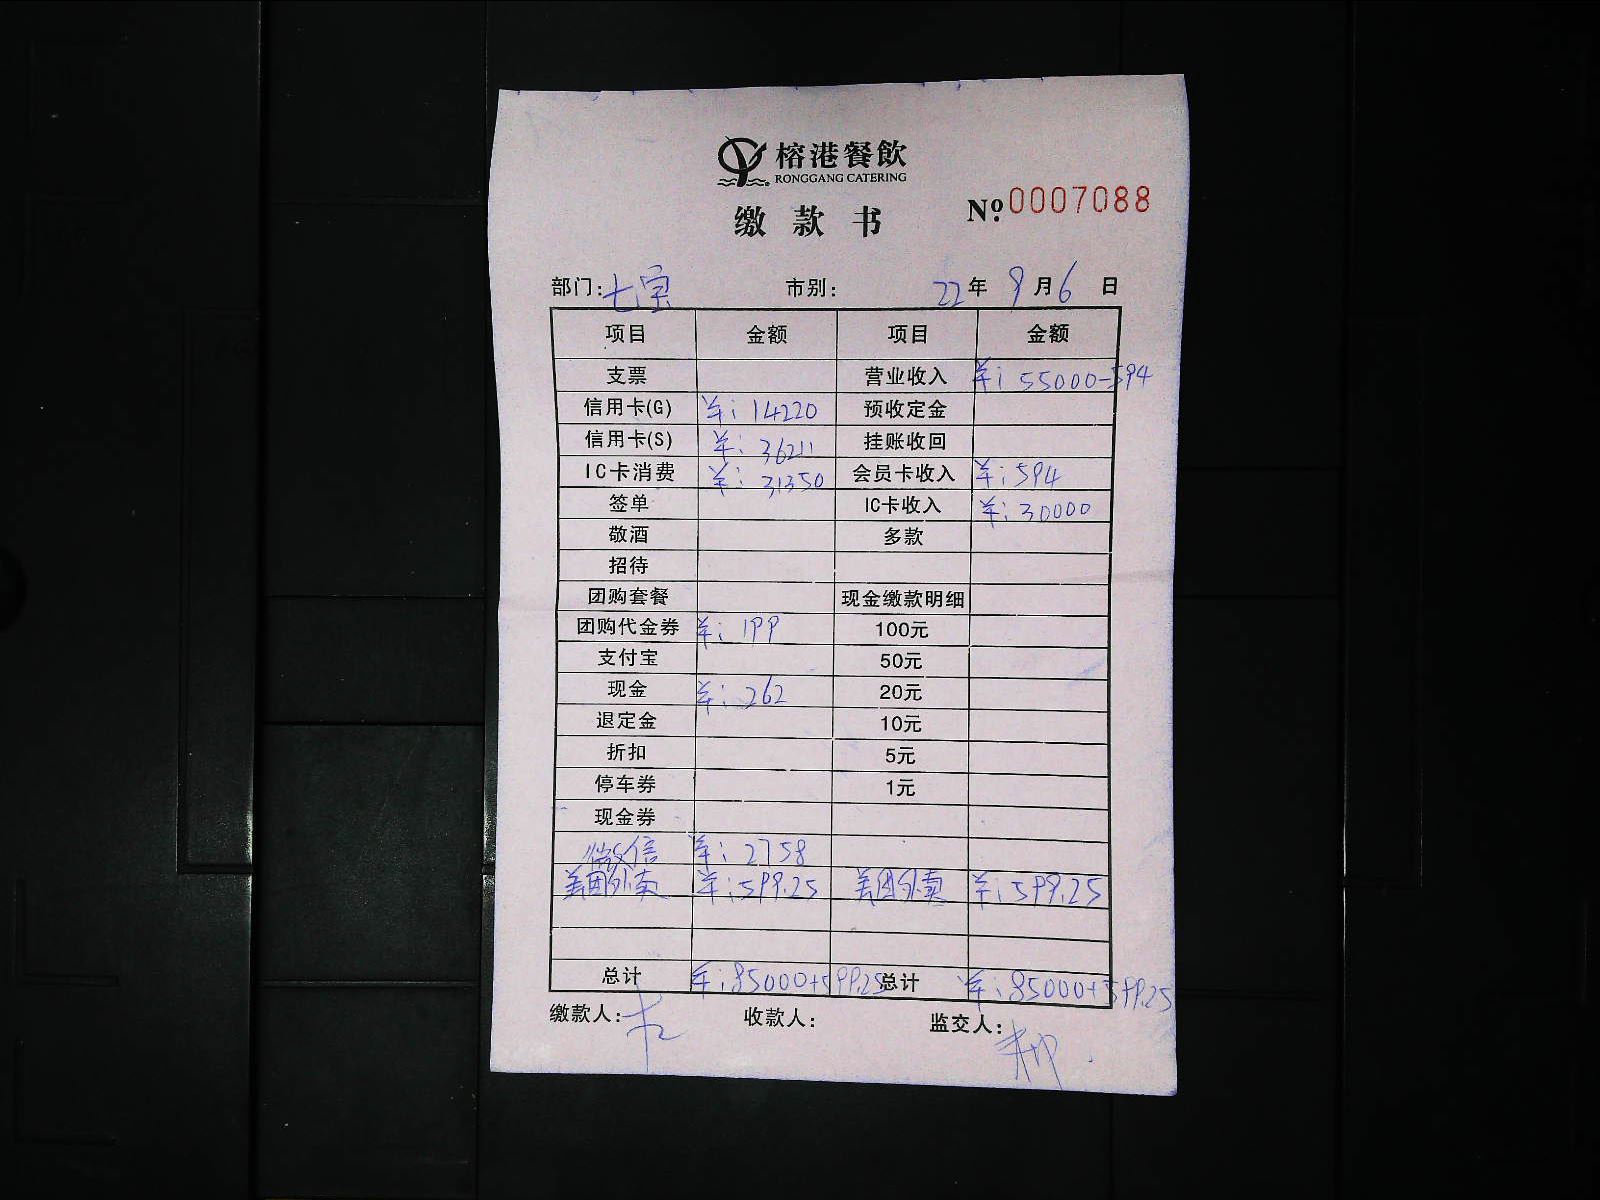 榕港餐飲
RONGGANG CATERING
缴款书 №:0007088
部门:七宝 市别: 22年9月6日
项目 金额 项目 金额
支票 营业收入 ¥:55000-594
信用卡(G) ¥:14220 预收定金
信用卡(S) ¥:36211 挂账收回
IC卡消费 ¥:31350 会员卡收入 ¥:594
签单 IC卡收入 ¥:30000
敬酒 多款
招待
团购套餐 现金缴款明细
团购代金券 ¥:199 100元
支付宝 50元
现金 ¥:262 20元
退定金 10元
折扣 5元
停车券 1元
现金券
微信 ¥:2758
美团外卖 ¥:599.25 美团外卖 ¥:599.25
总计 ¥:85000+599.25 总计 ¥:85000+599.25
缴款人: 收款人: 监交人: